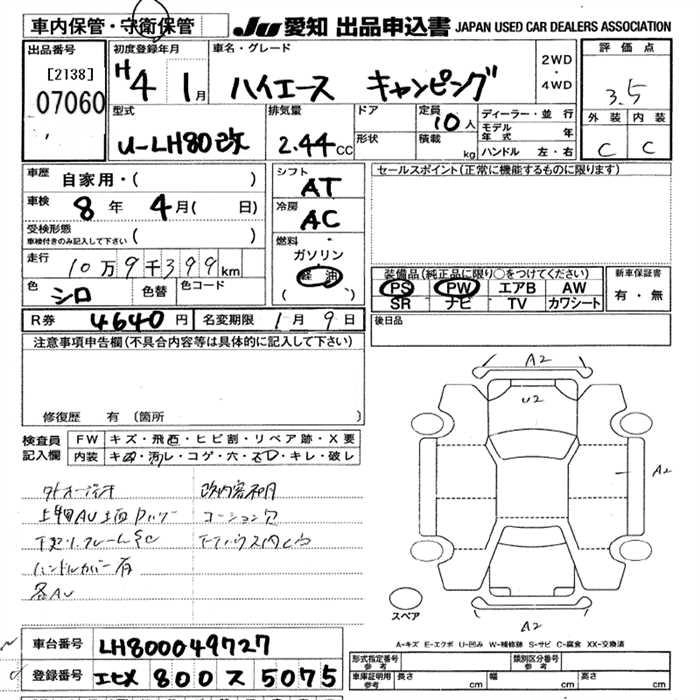 車内保管・守衛保管
Ju 愛知 出品申込書 JAPAN USED CAR DEALERS ASSOCIATION
出品番号
[2138]
07060
初度登録年月
H4 1月
車名・グレード
ハイエース キャンピング
2WD
・
4WD
評価点
3.5
外装 内装
C C
型式
U-LH80改
排気量
2.44CC
ドア
形状
定員
10人
積載
kg
ディーラー・並行
モデル年式 年
ハンドル 左・右
車歴
自家用・( )
車検
8年 4月( 日)
受検形態
車検付きのみ記入して下さい ( )
走行
10万9千399km
色
シロ
色替
色コード
シフト
AT
冷房
AC
燃料
ガソリン
軽油
( )
セールスポイント(正常に機能するものに限ります)
装備品(純正品に限り○をつけてください)
PS PW エアB AW
SR ナビ TV カワシート
新車保証書
有・無
R券 4640円 名変期限 1月9日
後日品
注意事項申告欄(不具合内容等は具体的に記入して下さい)
修復歴 有 〔箇所 〕
検査員
記入欄
FW キズ・飛石・ヒビ割・リペア跡・X要
内装 キズ・汚レ・コゲ・穴・スレ・キレ・破レ
ハンドルカバー有
各AU
コーション穴
A2
U2
A2
A2
スペア
A-キズ E-エクボ U-凹み W-補修跡 S-サビ C-腐食 XX-交換済
車台番号 LH800049727
登録番号 エヒメ 800 ス 5075
型式指定番号
参考
類別区分番号
参考
車庫証明用
参考
長さ cm 幅 cm 高さ cm